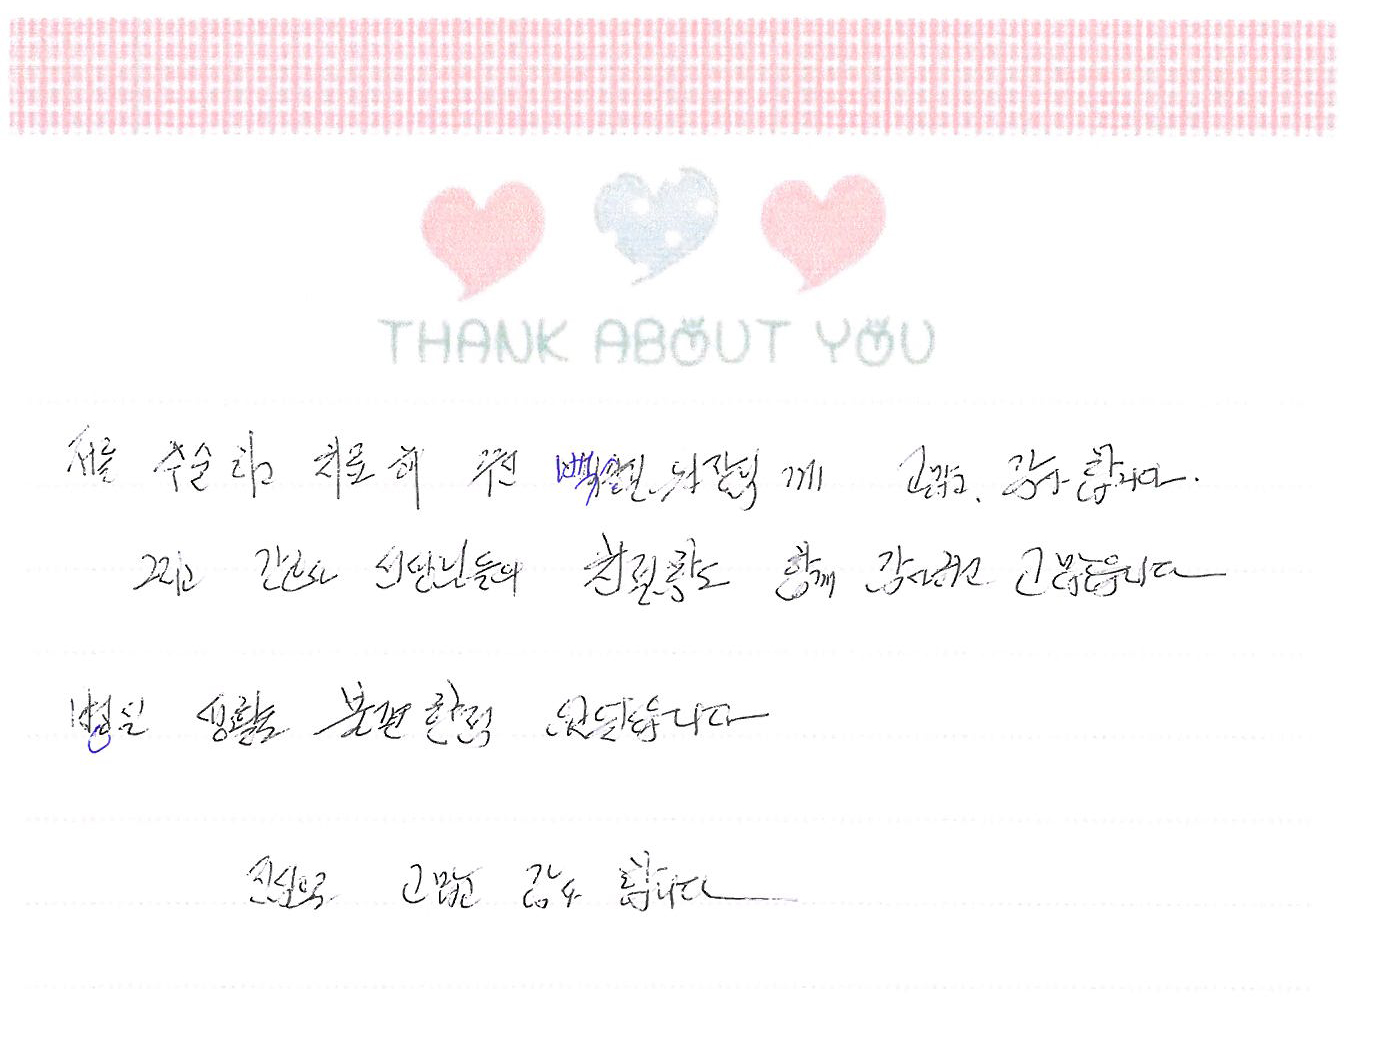 THANK ABOUT YOU
저를 수술하고 치료해 주신 께 고맙고, 감사합니다.
그리고 간호사 선생님들의 함께 감사하고 고맙습니다
병원 생활을 불편한점 없었습니다
진심으로 고맙고 감사 합니다